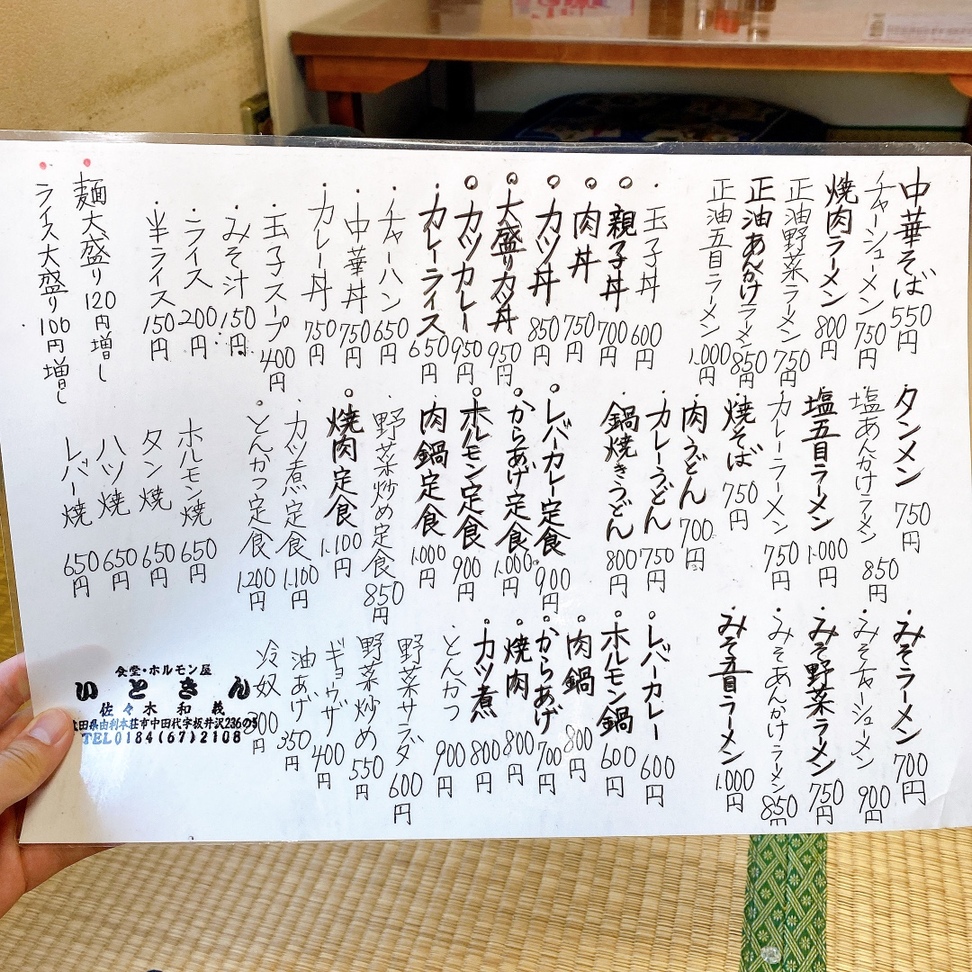 中華そば 550円
・チャーシューメン 750円
焼肉ラーメン 800円
正油野菜ラーメン 750円
正油あんかけラーメン 850円
正油五目ラーメン 1.000円
・玉子丼 600円
親子丼 700円
肉丼 750円
カツ丼 850円
大盛りカツ丼 950円
カツカレー 950円
・カレーライス 650円
・チャーハン 650円
・中華丼 750円
・カレー丼 750円
・玉子スープ 400円
・みそ汁 150円
・ライス 200円
・半ライス 150円
・麺大盛り120円増し
・ライス大盛り100円増し
・タンメン 750円
塩あんかけラーメン 850円
塩五目ラーメン 1.000円
・カレーラーメン 750円
焼そば 750円
肉うどん 700円
カレーうどん 750円
鍋焼きうどん 800円
・レバーカレー定食 900円
・からあげ定食 1.000円
・ホルモン定食 900円
肉鍋定食 1.000円
野菜炒め定食 850円
・焼肉定食 1.100円
・カツ煮定食 1.100円
・とんかつ定食 1.200円
ホルモン焼 650円
タン焼 650円
ハツ焼 650円
レバー焼 650円
・みそラーメン 700円
・みそチャーシューメン 900円
・みそ野菜ラーメン 750円
・みそあんかけラーメン 850円
・みそ五目ラーメン 1.000円
・レバーカレー 600円
・ホルモン鍋 600円
・肉鍋 800円
・からあげ 700円
・焼肉 800円
・カツ煮 800円
・とんかつ 900円
野菜サラダ 600円
野菜炒め 550円
ギョウザ 400円
油あげ 350円
冷奴 300円
食堂・ホルモン屋
いときん
佐々木 和義
田県由利本荘市中田代字板井沢236の5
TEL0184(67)2108